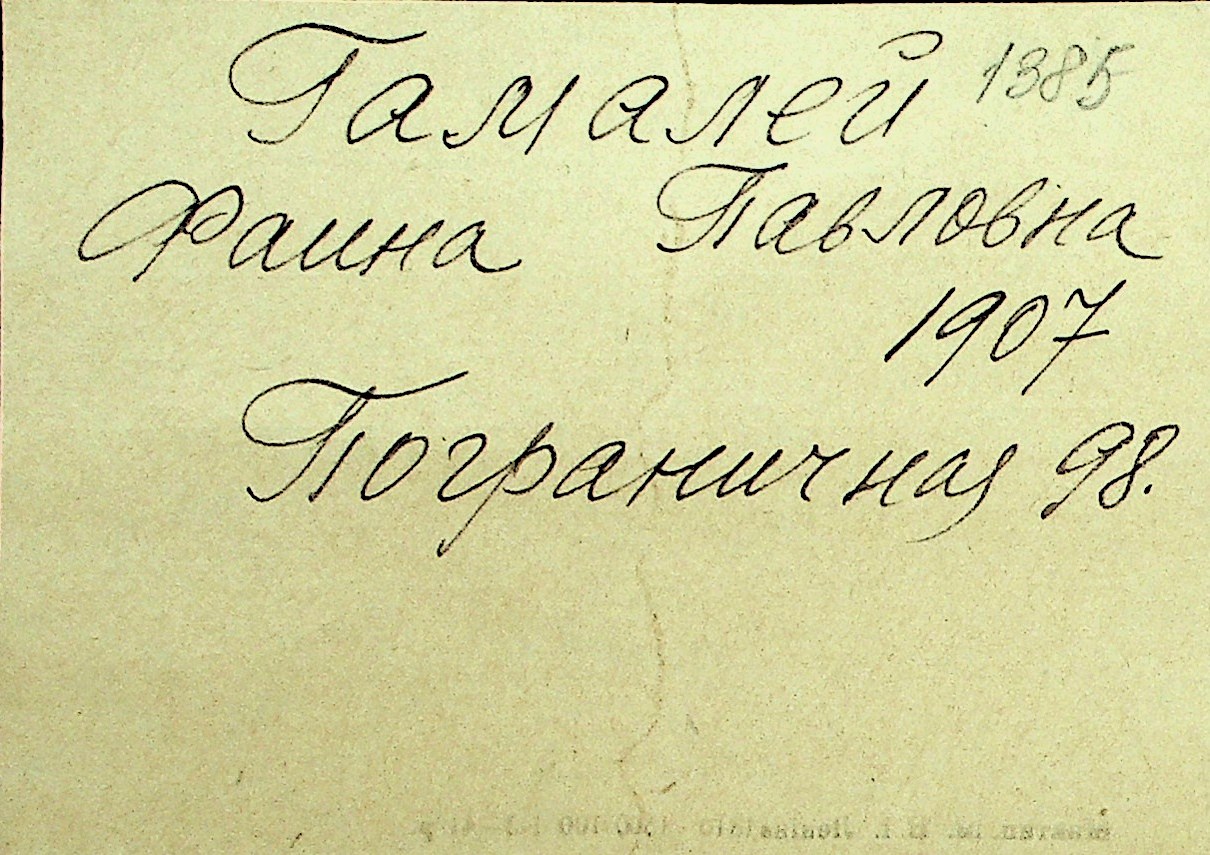 Гамалей 1385
Фаина Павловна
1907
Пограничная 98.